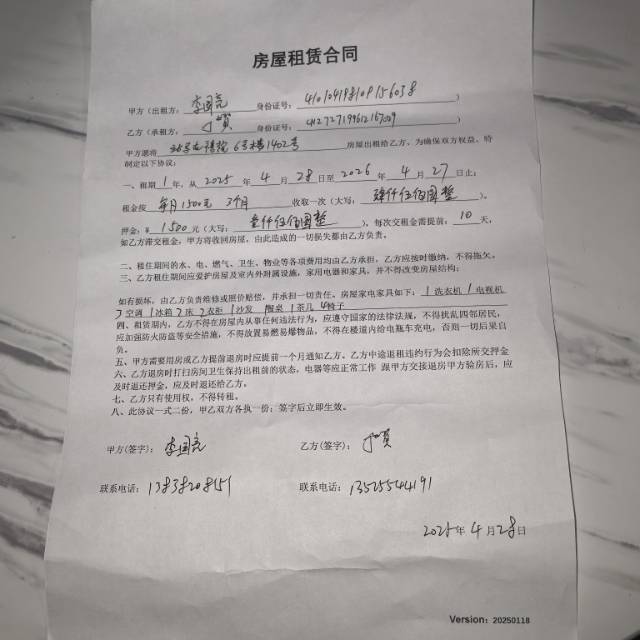 房屋租赁合同
甲方(出租方: 李国亮 身份证号: )
乙方(承租方: 身份证号: )
甲方愿将 6号楼1402号 房屋出租给乙方、为确保双方权益、特
制定以下协议:
一、租期 1 年, 从 2025 年 4 月 28 日至 2026 年 4 月 27 日止;
租金按 每月1500元 3个月 收取一次(大写: 肆仟伍佰圆整 )。
押金: ¥ 1500 元(大写: 壹仟伍佰圆整 )。每次交租金需提前: 10 天,
如乙方滞交租金, 甲方将收回房屋, 由此造成的一切损失都由乙方负责。
二、租住期间的水、电、燃气、卫生、物业等各项费用均由乙方承担, 乙方应按时缴纳, 不得拖欠。
三、乙方租住期间应爱护房屋及室内外附属设施, 家用电器和家具, 并不得改变房屋结构;
如有损坏, 由乙方负责维修或照价赔偿, 并承担一切责任。房屋家电家具如下: 1 洗衣机 1 电视机
3 空调 1 冰箱 2 床 2 衣柜 1 沙发 桌 1 茶几 4 椅子
四、租赁期内, 乙方不得在房屋内从事任何违法行为, 应遵守国家的法律法规, 不得扰乱四邻居民,
应加强防火防盗等安全措施, 不得放置易燃易爆物品, 不得在楼道内给电瓶车充电, 否则一切后果自
负。
五、甲方需要用房或乙方提前退房时应提前一个月通知乙方。乙方中途退租违约行为会扣除所交押金
六、乙方退房时打扫房间卫生保持出租前的状态, 电器等应正常工作 跟甲方交接退房甲方验房后, 应
及时退还押金, 应及时退还给乙方。
七、乙方只有使用权, 不得转租。
八、此协议一式二份, 甲乙双方各执一份; 签字后立即生效。
甲方(签字): 李国亮 乙方(签字):
联系电话: 13838208151 联系电话: 13525544191
2025年 4 月 28 日
Version: 20250118